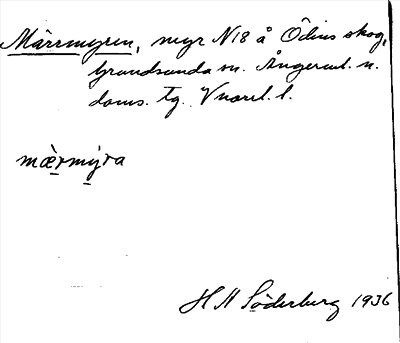 Märrmyren, myr N18 å Ödins skog,
Grundsunda sn. Ångerml. n.
doms. tg. Vnorrl. l.
mæ̀rmy̆ra
H A Söderberg 1936